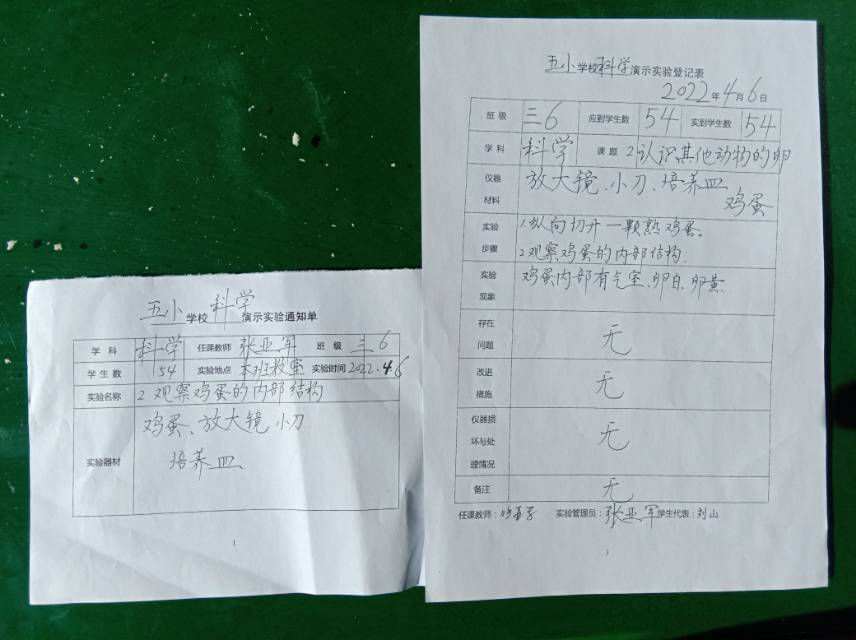 五小学校科学演示实验通知单
学科 科学 任课教师 张亚军 班级 三6
学生数 54 实验地点 本班教室 实验时间 2022.4.6
实验名称 2 观察鸡蛋的内部结构
实验器材 鸡蛋、放大镜 小刀
培养皿
1
五小学校科学演示实验登记表
2022年4月6日
班级 三6 应到学生数 54 实到学生数 54
学科 科学 课题 2 认识其他动物的卵
仪器材料 放大镜、小刀、培养皿
鸡蛋
实验步骤 1.纵向切开一颗熟鸡蛋。
2.观察鸡蛋的内部结构.
实验现象 鸡蛋内部有气室、卵白、卵黄.
存在问题 无
改进措施 无
仪器损坏与处理情况 无
备注 无
任课教师: 实验管理员:张亚军 学生代表:刘山
3